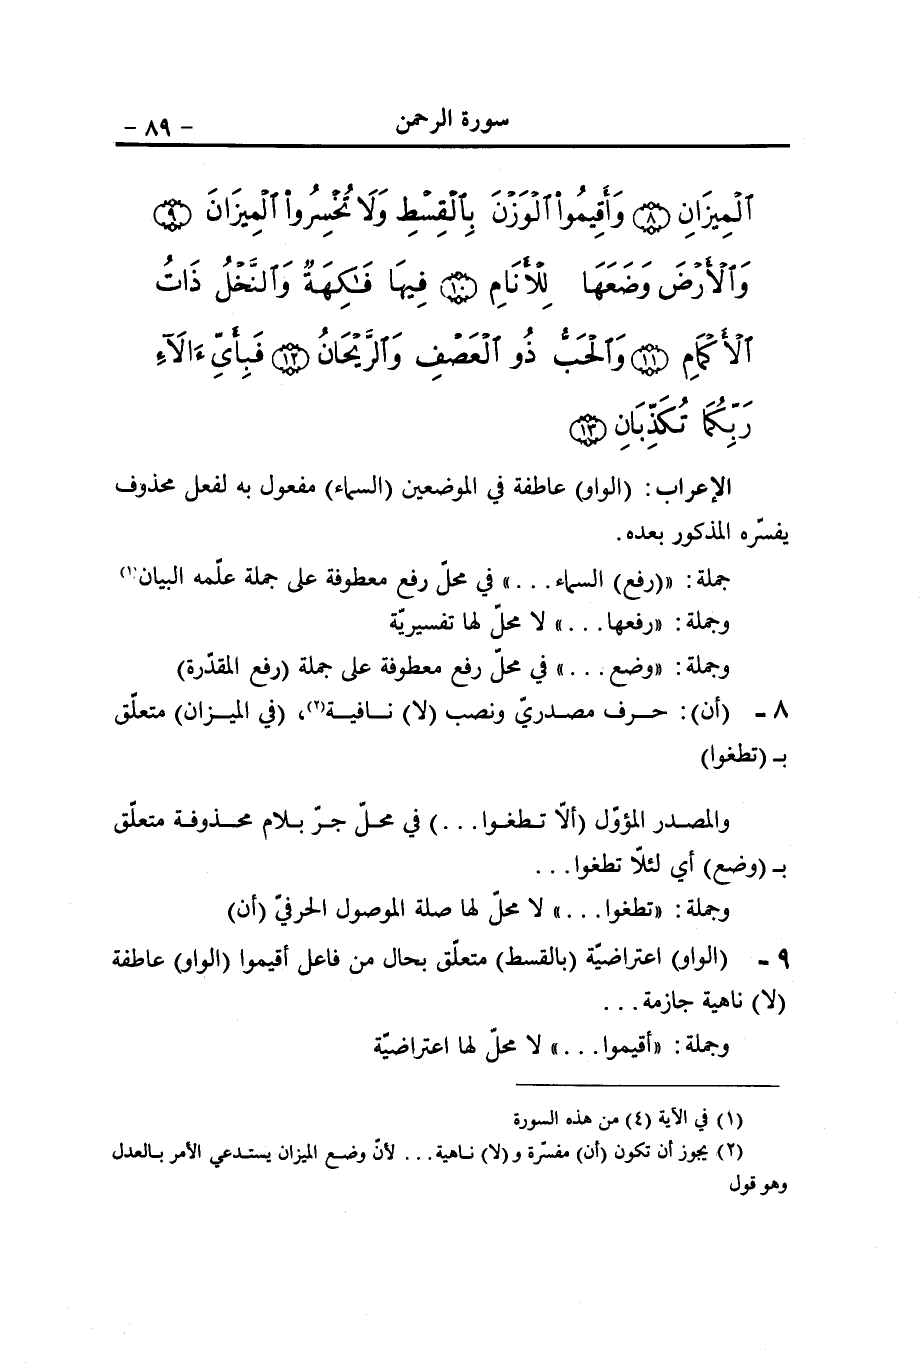 سورة الرحمن - ٨٩ -
ٱلْمِيزَانِ ﴿٨﴾ وَأَقِيمُوا۟ ٱلْوَزْنَ بِٱلْقِسْطِ وَلَا تُخْسِرُوا۟ ٱلْمِيزَانَ ﴿٩﴾
وَٱلْأَرْضَ وَضَعَهَا لِلْأَنَامِ ﴿١٠﴾ فِيهَا فَٰكِهَةٌ وَٱلنَّخْلُ ذَاتُ
ٱلْأَكْمَامِ ﴿١١﴾ وَٱلْحَبُّ ذُو ٱلْعَصْفِ وَٱلرَّيْحَانُ ﴿١٢﴾ فَبِأَىِّ ءَالَآءِ
رَبِّكُمَا تُكَذِّبَانِ ﴿١٣﴾
الإعراب: (الواو) عاطفة في الموضعين (السماء) مفعول به لفعل محذوف
يفسّره المذكور بعده.
جملة: «(رفع) السماء...» في محلّ رفع معطوفة على جملة علّمه البيان(١)
وجملة: «رفعها...» لا محلّ لها تفسيريّة
وجملة: «وضع...» في محلّ رفع معطوفة على جملة (رفع المقدّرة)
٨ - (أن): حرف مصدريّ ونصب (لا) نافية(٢)، (في الميزان) متعلّق
بـ (تطغوا)
والمصدر المؤوّل (ألاّ تطغوا...) في محلّ جرّ بلام محذوفة متعلّق
بـ (وضع) أي لئلاّ تطغوا...
وجملة: «تطغوا...» لا محلّ لها صلة الموصول الحرفيّ (أن)
٩ - (الواو) اعتراضيّة (بالقسط) متعلّق بحال من فاعل أقيموا (الواو) عاطفة
(لا) ناهية جازمة...
وجملة: «أقيموا...» لا محلّ لها اعتراضيّة
(١) في الآية (٤) من هذه السورة
(٢) يجوز أن تكون (أن) مفسّرة و (لا) ناهية... لأنّ وضع الميزان يستدعي الأمر بالعدل
وهو قول